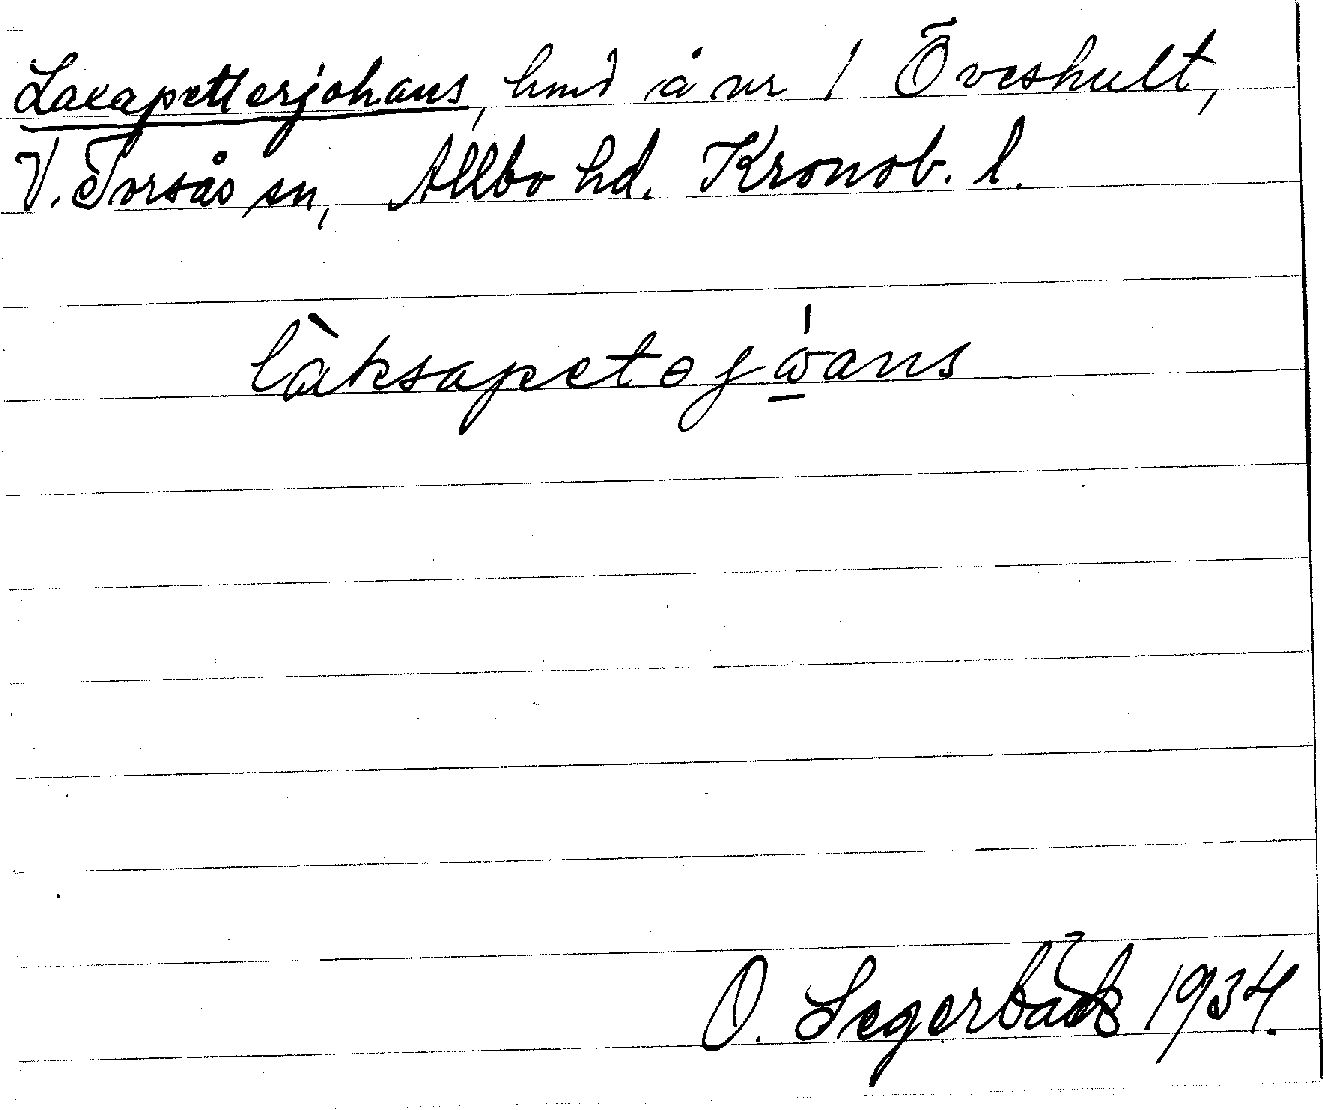 Laxapetterjohans, hmd å nr 1 Öveshult,
V. Torsås sn, Allbo hd. Kronob. l.
làksapetəjώ̱ans
O. Segerbäck 1934.